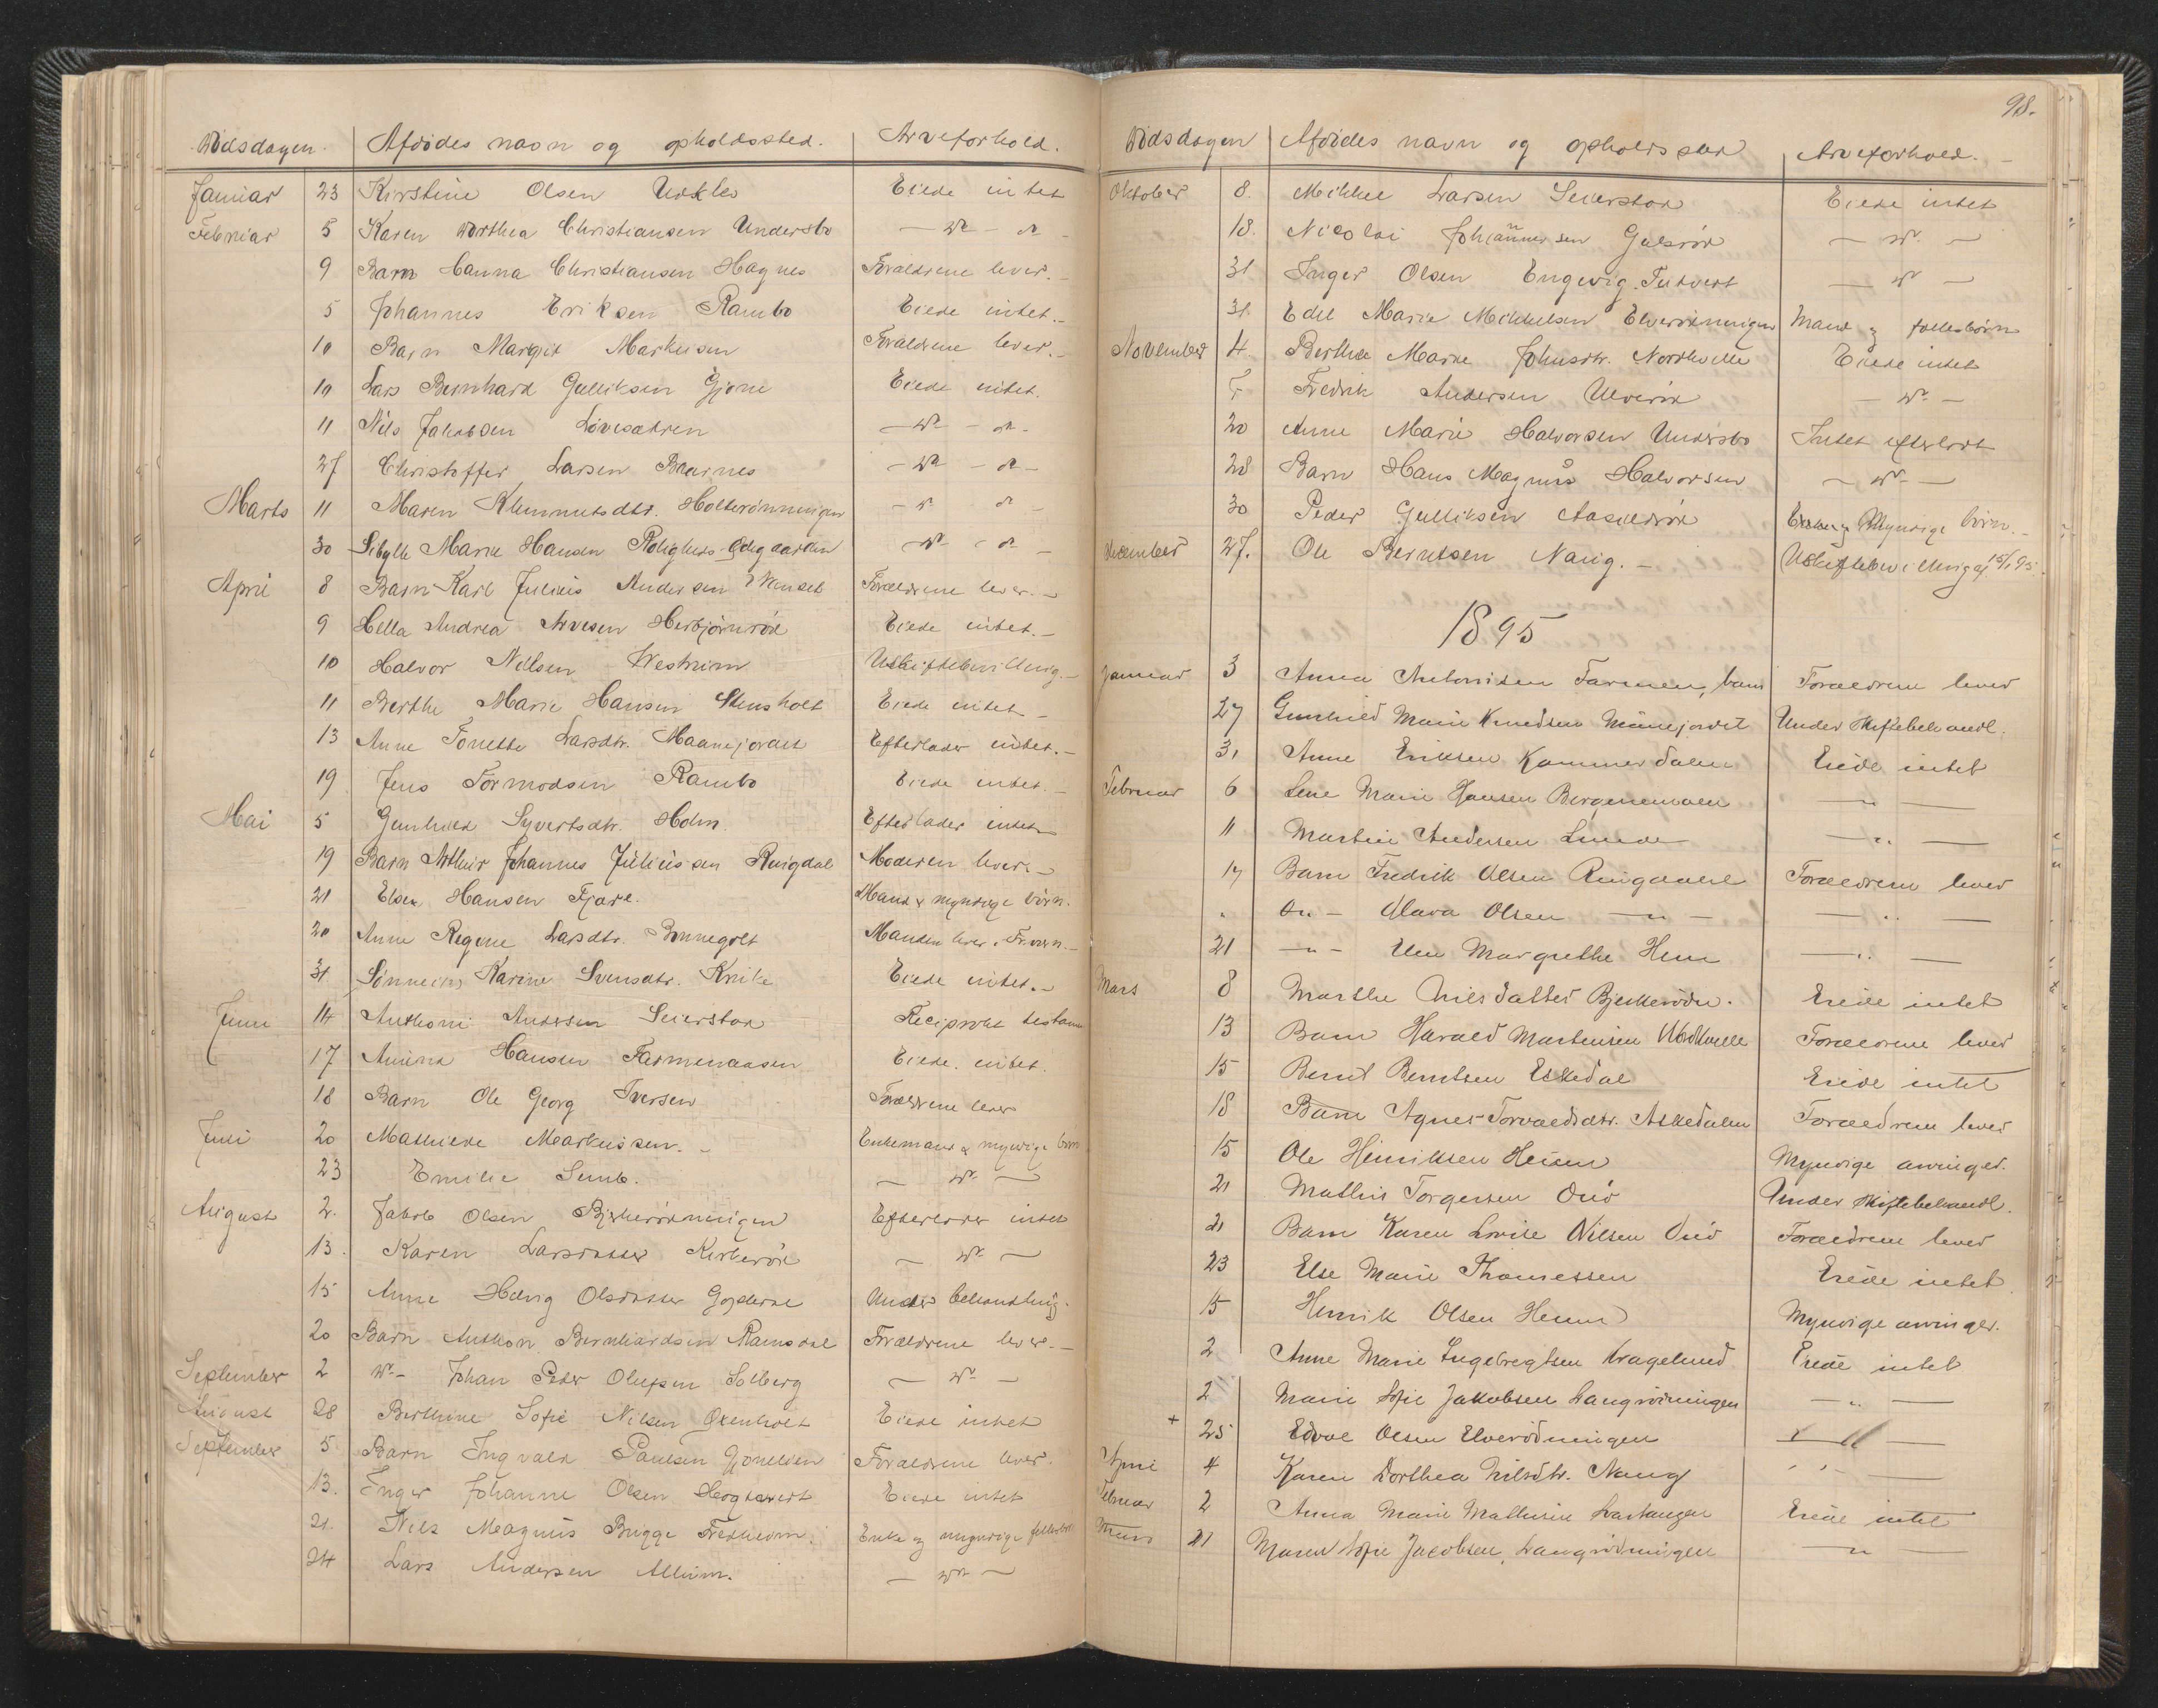 Dödsdagen. Afdödes navn og opholdssted. Arveforhold.
Januar 23 Kirstine Olsen Eiede intet
Februar 5 Karen Dorthea Christiansen Undersbo — do — do —
9 Barn Hanna Christiansen Hagnes Forældrene lever. —
5 Johannes Eriksen Rambo Eiede intet. —
10 Barn Margit Markusen Forældrene lever. —
10 Lars Bernhard Gulliksen Gjone Eiede intet.
11 Nils Jakobsen — do — do —
27 Christoffer Larsen — do — do —
Marts 11 Maren Klemmetsdtr. Holterønningen — do — do —
30 Sibylle Marie Hansen Rolighets-Ødegaarden — do — do —
April 8 Barn Karl Julius Andersen Forældrene lever. —
9 Hella Andrea Arvesen Herbjørnrød Eiede intet. —
10 Halvor Nilsen Westrum Uskiftebevilling. —
11 Berthe Marie Hansen Stensholt Eiede intet —
13 Anne Tonette Larsdtr. Maanejordet Efterlader intet. —
19 Jens Tormodsen Rambo Eiede intet. —
Mai 5 Gunhild Syvertsdtr. Holm. Efterlader intet
19 Barn Arthur Johannes Juliussen Ringdal Moderen lever. —
21 Elsea Hansen Fjære. Mand & myndige börn.
20 Anne Regine Larsdtr. Bonnegolt Manden lever.
31. Karine Svensdtr. Knike Eiede intet. —
Juni 14 Anthoni Andersen Seierstad Reciprokt testam
17 Hansen Farmenaasen Eiede intet.
18 Barn Ole Georg Iversen Forældrene lever
Juli 20 Mathiede Markussen. — Enkemand & myndige börn
23 Emilie Semb. — do —
August 2. Jakob Olsen Bjerkerønningen Efterlader intet
13. Karen Larsdatter Kirkerød — do —
15 Anne Helvig Olsdatter Under behandling.
20 Barn Anthon Bernhardsen Ramsdal Forældrene lever. —
September 2 do — Johan Peder Olufsen Solberg — do —
August 28 Berthine Sofie Nilsen Oxenholt Eiede intet
September 5. Barn Ingvald Paulsen Gjonelien Forældrene lever.
13. Inger Johanne Olsen Eiede intet
21. Nils Magnus Brigge Fredheim. Enke og myndige
24 Lars Andersen Allum. — do —
98.
Dödsdagen Afdödes navn og opholdssted Arveforhold. —
Oktober 8. Mikkel Larsen Seierstad Eiede intet
18. Nicolai Johannesen Gulsrød — do —
31 Inger Olsen Engevig. — do —
31. Edel Marie Mikkelsen Elverønningen Mand og fællesbörn
November 4. Berthe Marie Johnsdtr. Nordkvelle Eiede intet
Fredrik Andersen Ulverød — do —
20 Anne Marie Halvorsen Undersbo Intet efterladt
28 Barn Hans Magnus Halvorsen — do —
30 Peder Gulliksen Aasildrød Enke og Myndige börn. —
December 27. Ole Berntsen Naug. — Uskiftebevilling af 15/1 95.
1895
Januar 3 Anna Antonisen Farmen, barn Forældrene lever
27 Gunhild Marie Knudsen Maanejordet Under Skiftebehandl.
31 Anne Eriksen Kammerdalen Eiede intet
Februar 6 Lene Marie Hansen — " —
11 Martin Andersen Lunde — " —
17 Barn Fredrik Olsen Ringdal Forældrene lever
" do — Klara Olsen — " — — " —
21 — " — Margrethe Hem — " —
Mars 8 Marthe Nilsdatter Bjerkerødn. Eiede intet
13 Barn Harald Martinsen Nordkvelle Forældrene lever
15 Bernt Berntsen Eskedal Eiede intet
18 Barn Agnes Torvaldsdtr. Askedalen Forældrene lever
15 Ole Henriksen Heum Myndige arvinger.
21 Mathis Torgersen Ono Under Skiftebehandl.
21 Barn Karen Lovise Nilsen Ono Forældrene lever
23 Else Marie Thomessen Eiede intet
15 Henrik Olsen Heum Myndige arvinger.
2 Anne Marie Ingebregtsen Kragelund Eiede intet
2 Marie Sofie Jakobsen Langrønningen — " —
+ 25 Edvel Olsen Elverödningen — " —
April 4 Karen Dorthea Nilsdtr. Naug — " —
Februar 2 Anna Marie Mathisen Eiede intet
Mars 21 Maren Sofie Jacobsen, Langrödningen — " —